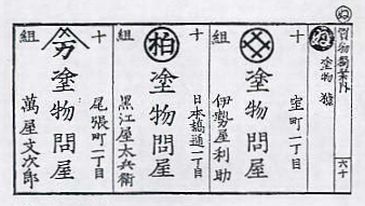 ぬ
買物獨案内
六十
ぬ
塗物類
十
組
塗物問屋
室町一丁目
伊勢屋利助
十
組
柏
塗物問屋
日本橋通一丁目
黒江屋太兵衛
十
組
万
塗物問屋
尾張町一丁目
萬屋文次郎